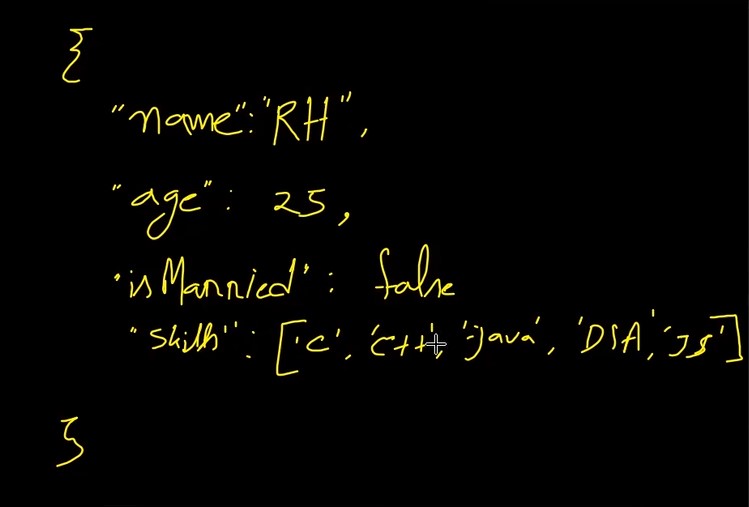 {
"name":"RH",
"age": 25,
"isMarried": false
"skills": ['C', 'C++', 'java', 'DSA', 'JS']
}